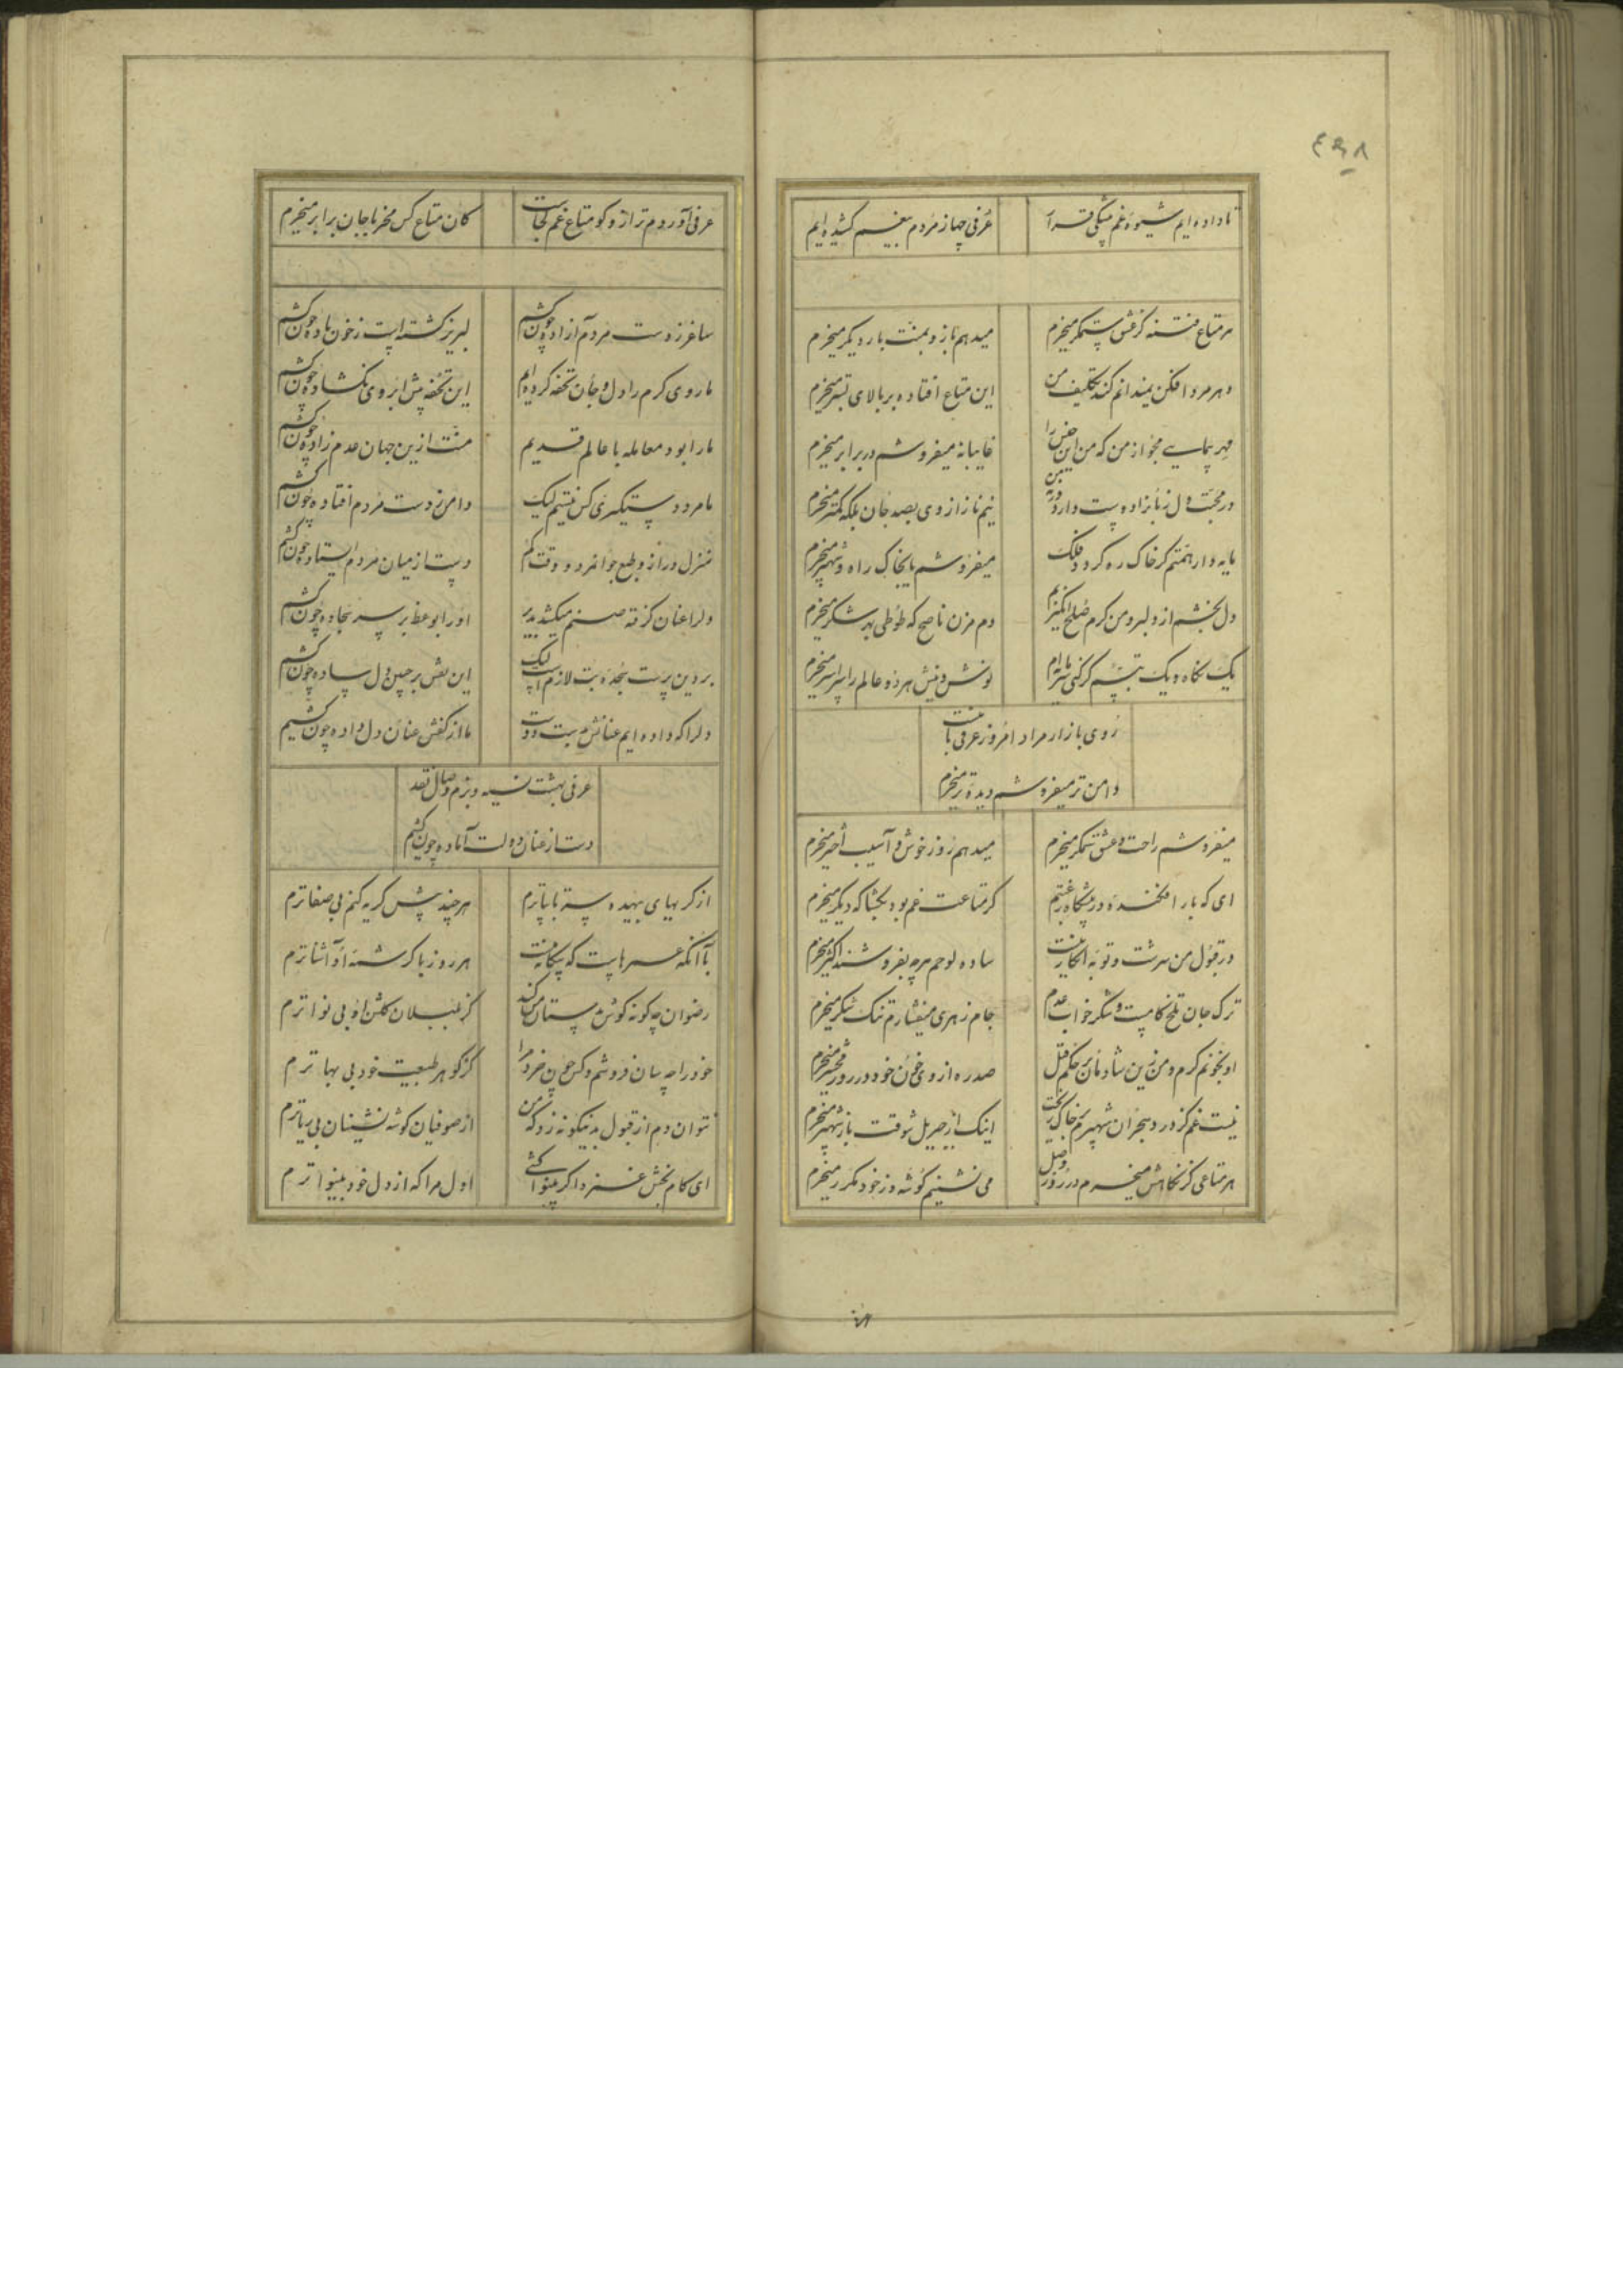 ۴۹۸
تا داده ایم شیوه غم پیشگی قرار
عرفی چها ز مردم بیغم کشیده ایم
هر متاع فتنه کز عشق ستمگر میخرم
میدهم باز و بمنت بار دیگر میخرم
دهر مرد افکن نمیدانم کند تکلیف من
این متاع افتاده بر بالای بستر میخرم
مهر پیمایی مجو از من که من این جنس را
غایبانه میفروشم در برابر میخرم
در محبت دل زیانزاده ست وارونه بین
نیم ناز از وی بصد جان بلکه کمتر میخرم
مایه دار همتم گر خاک ره گردد فلک
میفروشم با یخاک راه و شهپر میخرم
دل بخشم از دلبر و من گرم صلح انگیزیم
دم مزن ناصح که طوطی بهر شکر میخرم
یک نگاه و یک تبسم گر کنی با نیزام
نوش و نیش هر دو عالم را سراسر میخرم
روی بازار مراد امروز عرفی با منست
دامن تر میفروشم دیده تر میخرم
میفروشم راحت و عشق ستمگر میخرم
میدهم روز خوش و آسیب اختر میخرم
ای که بار افکنده در پیشگاه رغبتم
گر متاعت غم بود بگشا که دیگر میخرم
در قبول من سرشت و توبه انکاریست
ساده لوحم هر چه بفروشند اکثر میخرم
ترک جان تلخ کامیست و شکر خواب عدم
جام زهری میفشارم تنگ شکر میخرم
او بخونم گرم و من زین شادمان کز حکم قتل
صد ره از وی خون خود در روز محشر میخرم
نیست غم گر در هجران شهپرم خاک ریخت
اینک از جبریل شوقت باز شهپر میخرم
هر متاعی کز نگاهش میخرم در روز وصل
می نشینم گوشه وز خود مکرر میخرم
عرفی آوردم ترازو کو متاع غم کجاست
کان متاع کس مخر با جان برابر میخرم
ساغر ز دست مردم آزاده چون کشم
لبریز گشته است ز خون باده چون کشم
ما روی گرم را دل و جان تحفه کرده ایم
این تحفه پیش ابروی نگشاده چون کشم
ما را بود معامله با عالم قدیم
منت ازین جهان عدم زاده چون کشم
ما مرد دستگیری کس نیستیم لیک
دامن ز دست مردم افتاده چون کشم
منزل دراز و طبع جوانمرد و وقت کم
دست از میان مردم استاده چون کشم
دلرا عنان گرفته صنم میکشد بدیر
او را بوعظ بر سر سجاده چون کشم
بر دین پرست سجده بت لازم است لیک
این نقش بر جبین دل ساده چون کشم
دلرا که داده ایم عنانش بدست دوست
ما از کفش عنان دل داده چون کشیم
عرفی بهشت نسیه و بزم وصال نقد
دست از عنان دولت آماده چون کشم
از گریهای بیهده سر تا بپا ترم
هر چند پیش گریه کنم بی صفا ترم
با آنکه عمرهاست که بیگانه منست
هر روز با کرشمه او آشنا ترم
رضوان چگونه گوش بدستان من کند
کز بلبلان گلشن او بی نوا ترم
خود را چه سان فروشم و کس چون خرد مرا
کز گوهر طبیعت خود بی بها ترم
نتوان دم از قبول بدینگونه زد که من
از صوفیان گوشه نشینان بی ریا ترم
ای کام بخش غمزده گر بینوا کشی
اول مرا که از دل خود بینوا ترم